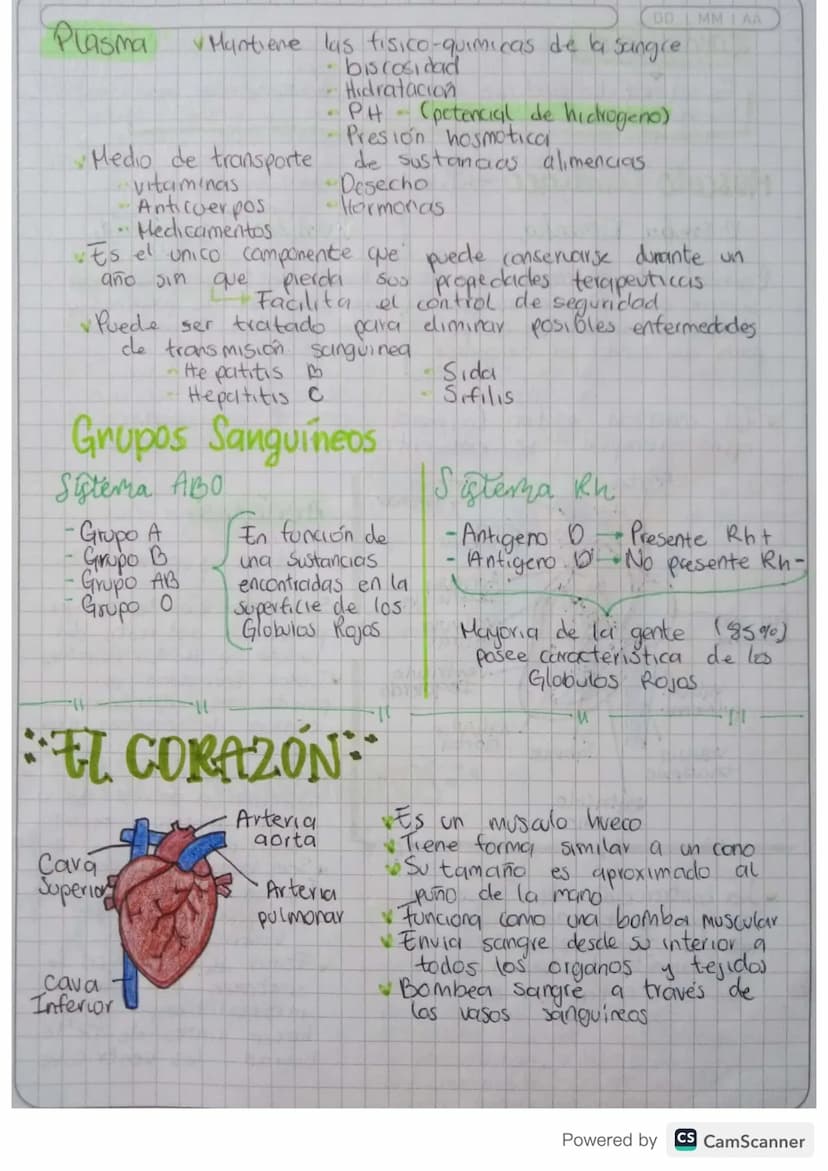 DD | MM | AA
Plasma
Mantiene las fisico-quimicas de la sangre
- biscosidad
- Hidratación
- PH - (potencial de hidrogeno)
- Presión hosmotica
Medio de transporte de sustancias alimencias
- vitaminas
- Desecho
- Anticuerpos
- Hormonas
- Medicamentos
Es el unico componente que puede conservarse durante un
año sin que pierda sus propedades terapeuticas
Facilita el control de seguridad
Puede ser tratado para eliminar posibles enfermedades
de transmisión sanguinea
- Hepatitis B
- Sida
- Hepatitis C
- Sifilis
Grupos Sanguíneos
Sistema ABO
- Grupo A
- Grupo B
- Grupo AB
- Grupo O
En función de
una sustancias
encontradas en la
superficie de los
Globulos Rojos
Sistema Rh
- Antigeno D → Presente Rh+
- Antigeno D → No presente Rh-
Mayoria de la gente (85%)
posee caracteristica de los
Globulos Rojos
EL CORAZÓN
Arteria
aorta
Cava
Superior
Arteria
pulmonar
Cava
Inferior
Es un musculo hueco
Tiene forma similar a un cono
Su tamaño es aproximado al
puño de la mano
Funciona como una bomba muscular
Envia sangre desde su interior a
todos los organos y tejidos
Bombea sangre a través de
los vasos sanguineos
Powered by CS CamScanner